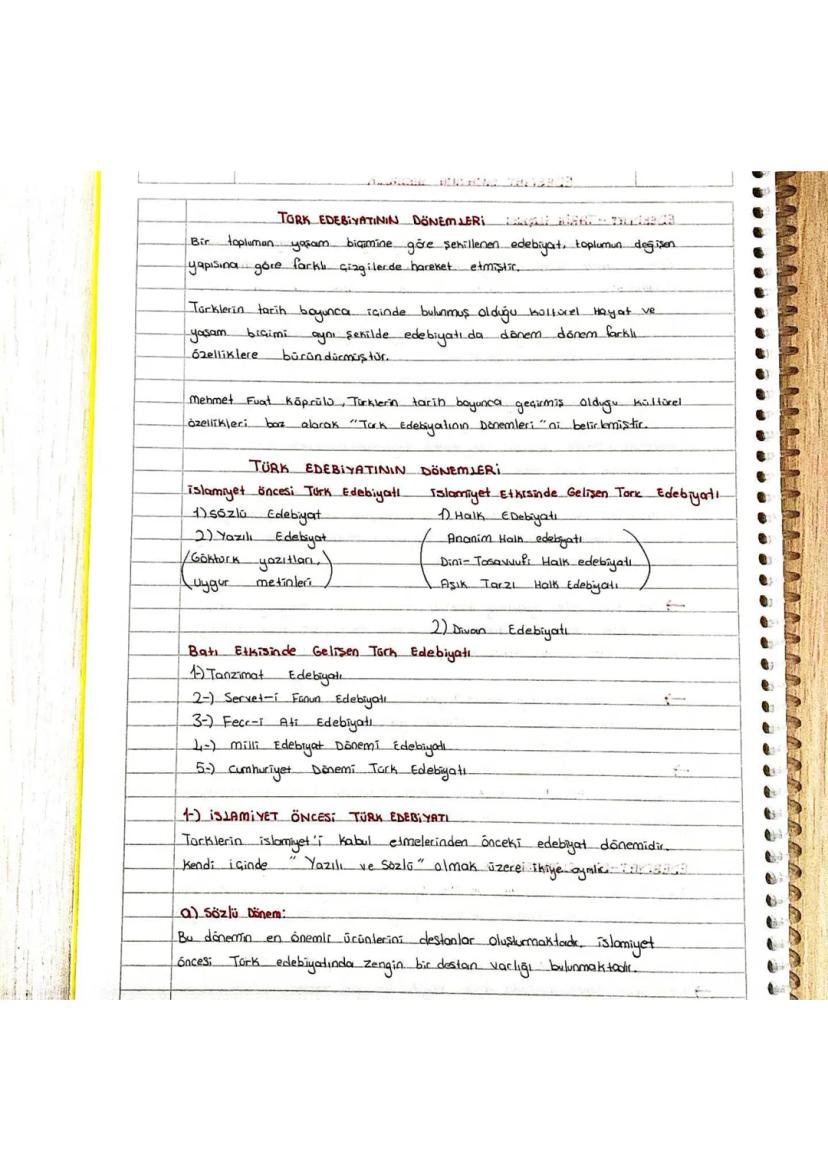 TÜRK EDEBİYATININ DÖNEMLERİ
Bir toplumun yaşam biçimine göre şekillenen edebiyat, toplumun değişen
yapısına göre farklı çizgilerde hareket etmiştir.
Türklerin tarih boyunca içinde bulunmuş olduğu kültürel Hayat ve
yaşam biçimi aynı şekilde edebiyatı da dönem dönem farklı
özelliklere büründürmüştür.
Mehmet Fuat Köprülü, Türklerin tarih boyunca geçirmiş olduğu kültürel
özellikleri baz alarak "Türk Edebiyatının Dönemleri"ni belirlemiştir.
TÜRK EDEBİYATININ DÖNEMLERİ
İslamiyet öncesi Türk Edebiyatı İslamiyet Etkisinde Gelişen Türk Edebiyatı
1) Sözlü Edebiyat 1) Halk Edebiyatı
2) Yazılı Edebiyat Anonim Halk edebiyatı
(Göktürk yazıtları, Dini-Tasavvufi Halk edebiyatı
Uygur metinleri) Aşık Tarzı Halk Edebiyatı
2) Divan Edebiyatı
Batı Etkisinde Gelişen Türk Edebiyatı
1-) Tanzimat Edebiyatı
2-) Servet-i Fünun Edebiyatı
3-) Fecr-i Ati Edebiyatı
4-) Milli Edebiyat Dönemi Edebiyatı
5-) Cumhuriyet Dönemi Türk Edebiyatı
1-) İSLAMİYET ÖNCESİ TÜRK EDEBİYATI
Türklerin islamiyet'i kabul etmelerinden önceki edebiyat dönemidir.
Kendi içinde "Yazılı ve Sözlü" olmak üzere ikiye ayrılır.
a) Sözlü Dönem:
Bu dönemin en önemli ürünlerini destanlar oluşturmaktadır. islamiyet
öncesi Türk edebiyatında zengin bir destan varlığı bulunmaktadır.